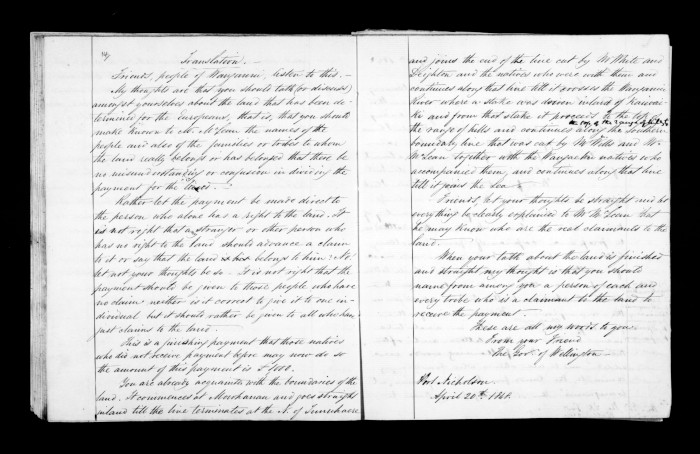 Translation.—
Friends, people of Wanganui, listen to this.—
My thoughts are that you should talk (or discuss)
amongst yourselves about the land that has been de-
termined for the Europeans, that is, that you should
make known to Mr. McLean the names of the
people and also of the families or tribes to whom
the land really belongs or has belonged that there be
no misunderstanding or confusion in dividing the
payment for the land.—
Rather let the payment be made direct to
the person who alone has a right to the land. It
is not right that a stranger or other person who
has no right to the land should advance a claim
to it or say that the land belongs to him. No!
let not your thoughts be so. It is not right that the
payment should be given to those people who have
no claim neither is it correct to give it to one in-
dividual but it should rather be given to all who have
just claims to the land.
This is a finishing payment that those natives
who did not receive payment before may now do so
the amount of this payment is £1000.
You are already acquainted with the boundaries of the
land. It commences at Mowhanau and goes straight
inland till the line terminates at the N. of
and joins the end of the line cut by Mr White and
Deighton and the natives who were with them and
continues along that line till it crosses the Wanganui
River where a stake was driven inland of Kaiwai-
ke and from that stake it proceeds to the
the top of the range of hills
the range of hills and continues along the southern
boundary line that was cut by Mr Wills and Mr
McLean together with the Wangaehu natives who
accompanied them, and continues along that line
till it joins the sea.
Friends, let your thoughts be straight and let
everything be clearly explained to Mr McLean that
he may know who are the real claimants to the
land.
When your talk about the land is finished
and straight my thought is that you should
name from among you a person of each and
every tribe who is a claimant to the land to
receive the payment.
These are all my words to you.
From your Friend
The Govr of Wellington—
Port Nicholson
April 20th 1848.